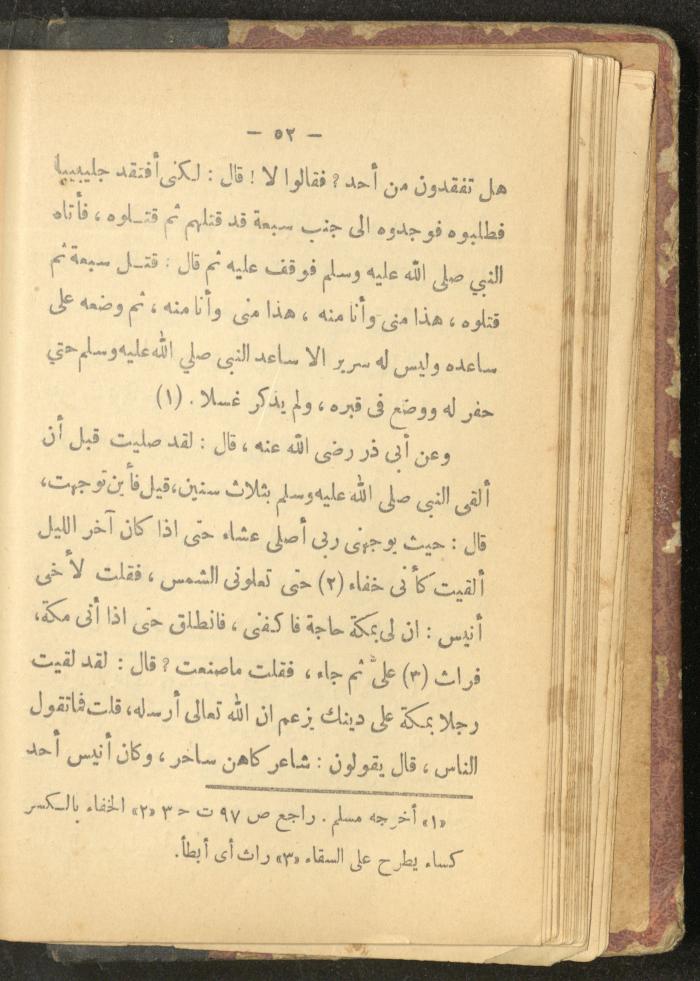 — ٥٢ —
هل تفقدون من أحد ? فقالوا لا ! قال : لكنى أفتقد جليبيبا
فطلبوه فوجدوه الى جنب سبعة قد قتلهم ثم قتلوه ، فأتاه
النبي صلى الله عليه وسلم فوقف عليه ثم قال : قتل سبعة ثم
قتلوه ، هذا منى وأنا منه ، هذا منى وأنا منه ، ثم وضعه على
ساعده وليس له سرير الا ساعد النبى صلي الله عليه وسلم حتي
حفر له ووضع فى قبره ، ولم يذكر غسلا . (١)
وعن أبى ذر رضى الله عنه ، قال : لقد صليت قبل أن
ألقى النبى صلى الله عليه وسلم بثلاث سنين، قيل فأين توجهت،
قال : حيث يوجهنى ربى أصلى عشاء حتى اذا كان آخر الليل
ألقيت كأنى خفاء (٢) حتى تعلونى الشمس ، فقلت لأخى
أنيس : ان لى بمكة حاجة فاكفنى ، فانطلق حتى اذا أتى مكة،
فراث (٣) علىّ ثم جاء ، فقلت ماصنعت ? قال : لقد لقيت
رجلا بمكة على دينك يزعم ان الله تعالى أرسله، قلت فماتقول
الناس ، قال يقولون : شاعر كاهن ساحر ، وكان أنيس أحد
«١» أخرجه مسلم . راجع ص ٩٧ ت ح ٣ «٢» الخفاء بالكسر
كساء يطرح على السقاء «٣» راث أى أبطأ.